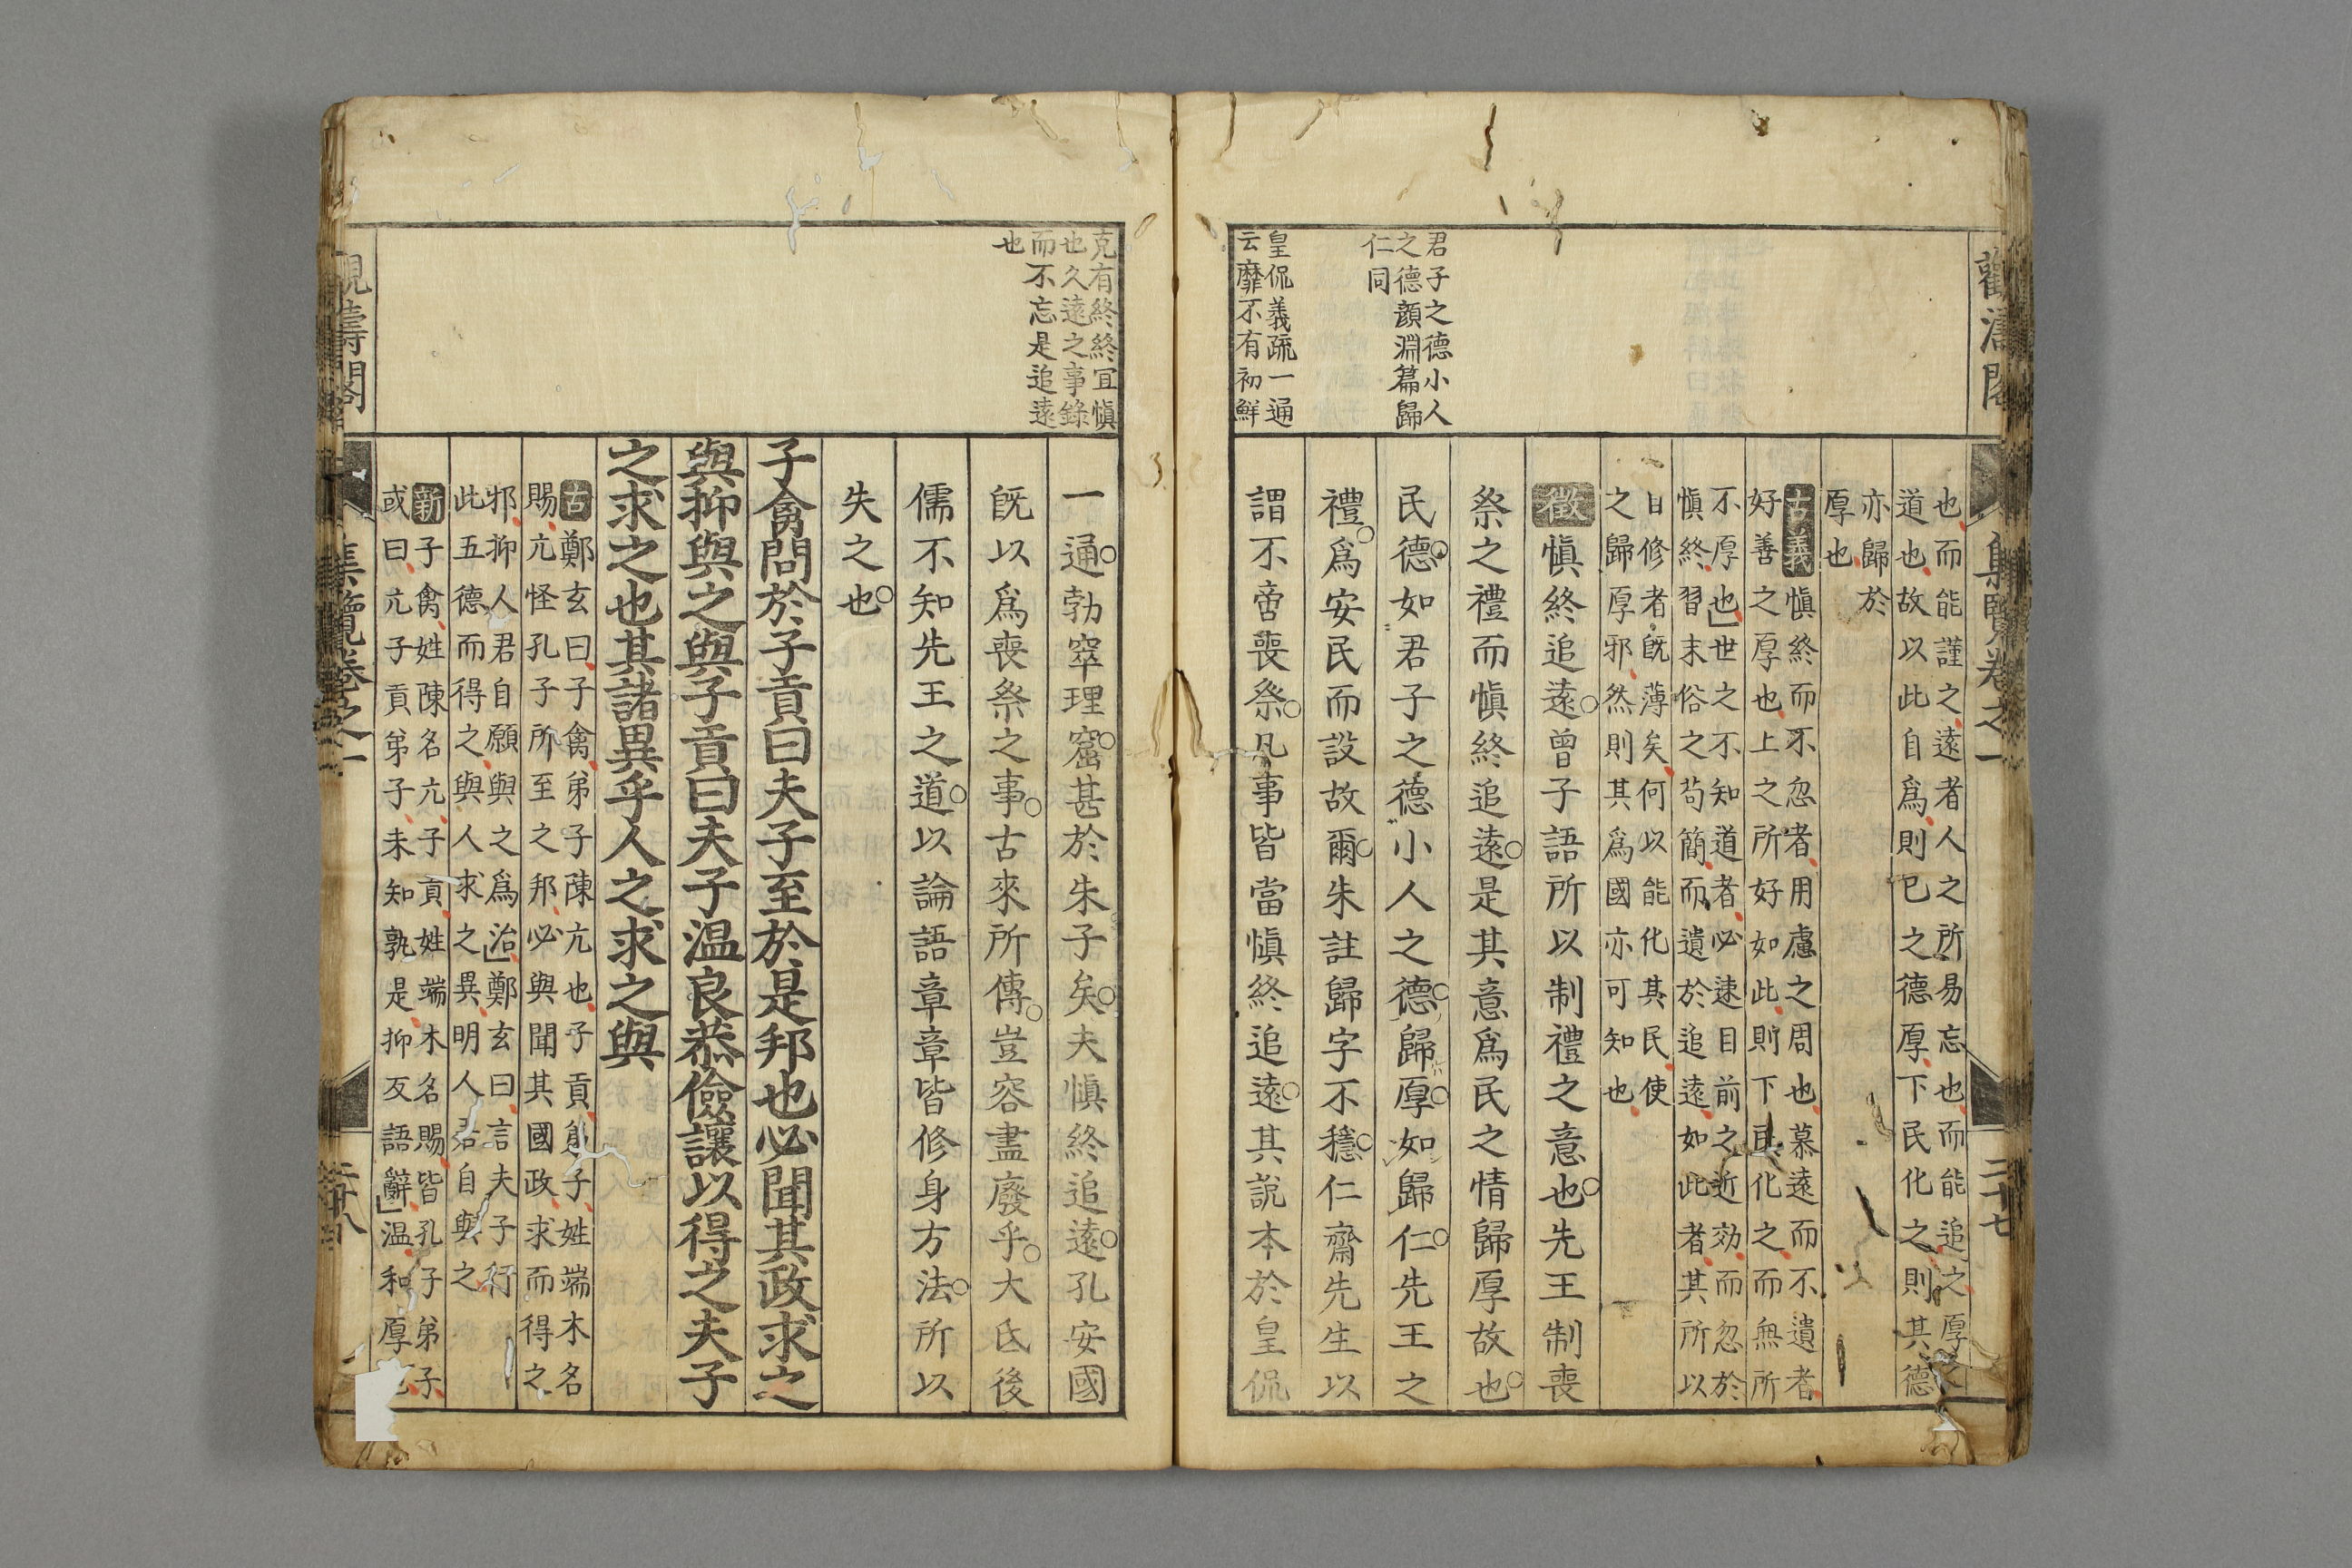 觀濤閣
集覽卷之一
二十七
君子之德小人
之德顏淵篇歸
仁同
皇侃義疏一通
云靡不有初鮮
也而能謹之遠者人之所易忘也而能追之厚之
道也故以此自爲則已之德厚下民化之則其德
亦歸於
厚也
古義愼終而不忽者用慮之周也慕遠而不遺者
好善之厚也上之所好如此則下民化之而無所
不厚也世之不知道者必速目前之近効而忽於
愼終習末俗之苟簡而遺於追遠如此者其所以
自修者旣薄矣何以能化其民使
之歸厚邪然則其爲國亦可知也
徵愼終追遠曾子語所以制禮之意也先王制喪
祭之禮而愼終追遠是其意爲民之情歸厚故也
民德如君子之德小人之德歸厚如歸仁先王之
禮爲安民而設故爾朱註歸字不穩仁齋先生以
謂不啻喪祭凡事皆當愼終追遠其說本於皇侃
克有終終宜愼
也久遠之事錄
而不忘是追遠
也
一通勃窣理窟甚於朱子矣夫愼終追遠孔安國
旣以爲喪祭之事古來所傳豈容盡廢乎大氐後
儒不知先王之道以論語章章皆修身方法所以
失之也
子禽問於子貢曰夫子至於是邦也必聞其政求之
與抑與之與子貢曰夫子温良恭儉讓以得之夫子
之求之也其諸異乎人之求之與
古鄭玄曰子禽弟子陳亢也子貢弟子姓端木名
賜亢怪孔子所至之邦必與聞其國政求而得之
邪抑人君自願與之爲治鄭玄曰言夫子行
此五德而得之與人求之異明人君自與之
新子禽姓陳名亢子貢姓端木名賜皆孔子弟子
或曰亢子貢弟子未知孰是抑反語辭温和厚也
觀濤閣
集覽卷之一
二十八